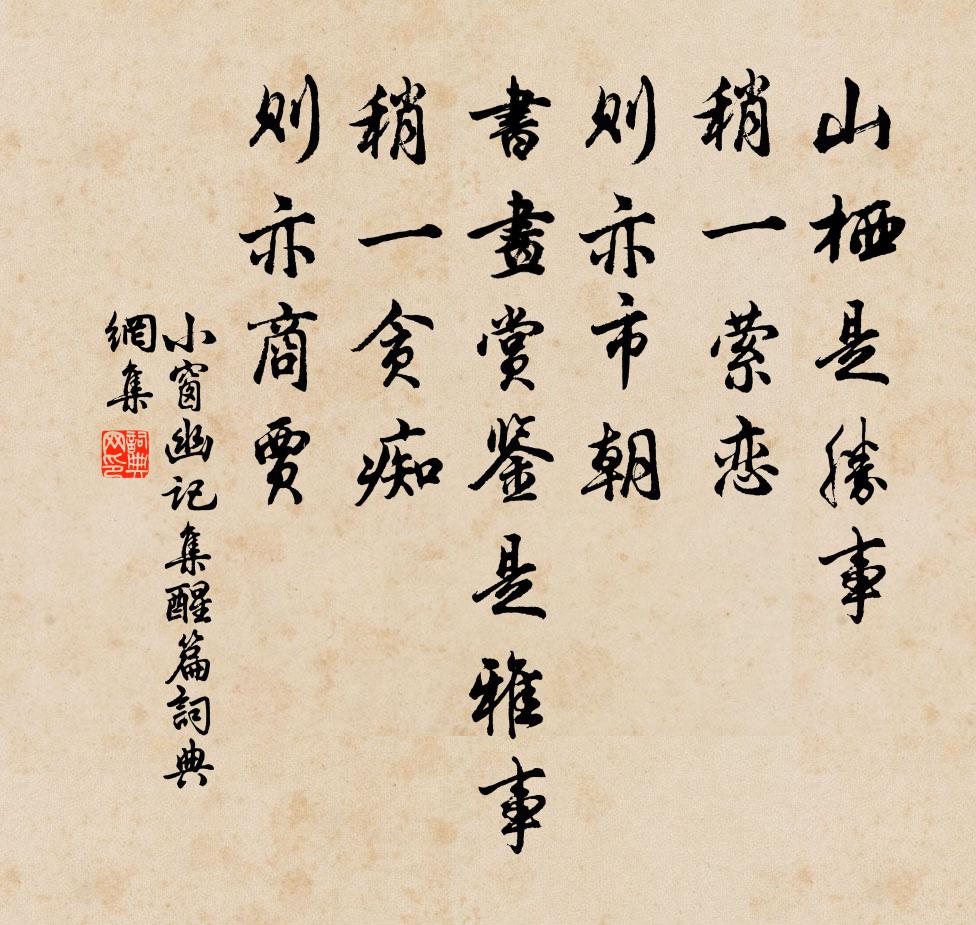 山栖是勝事
稍一萦恋
則亦市朝
書畫賞鉴是雅事
稍一贪痴
則亦商賈
小窗幽记集醒篇詞典
網集
詞典
网印